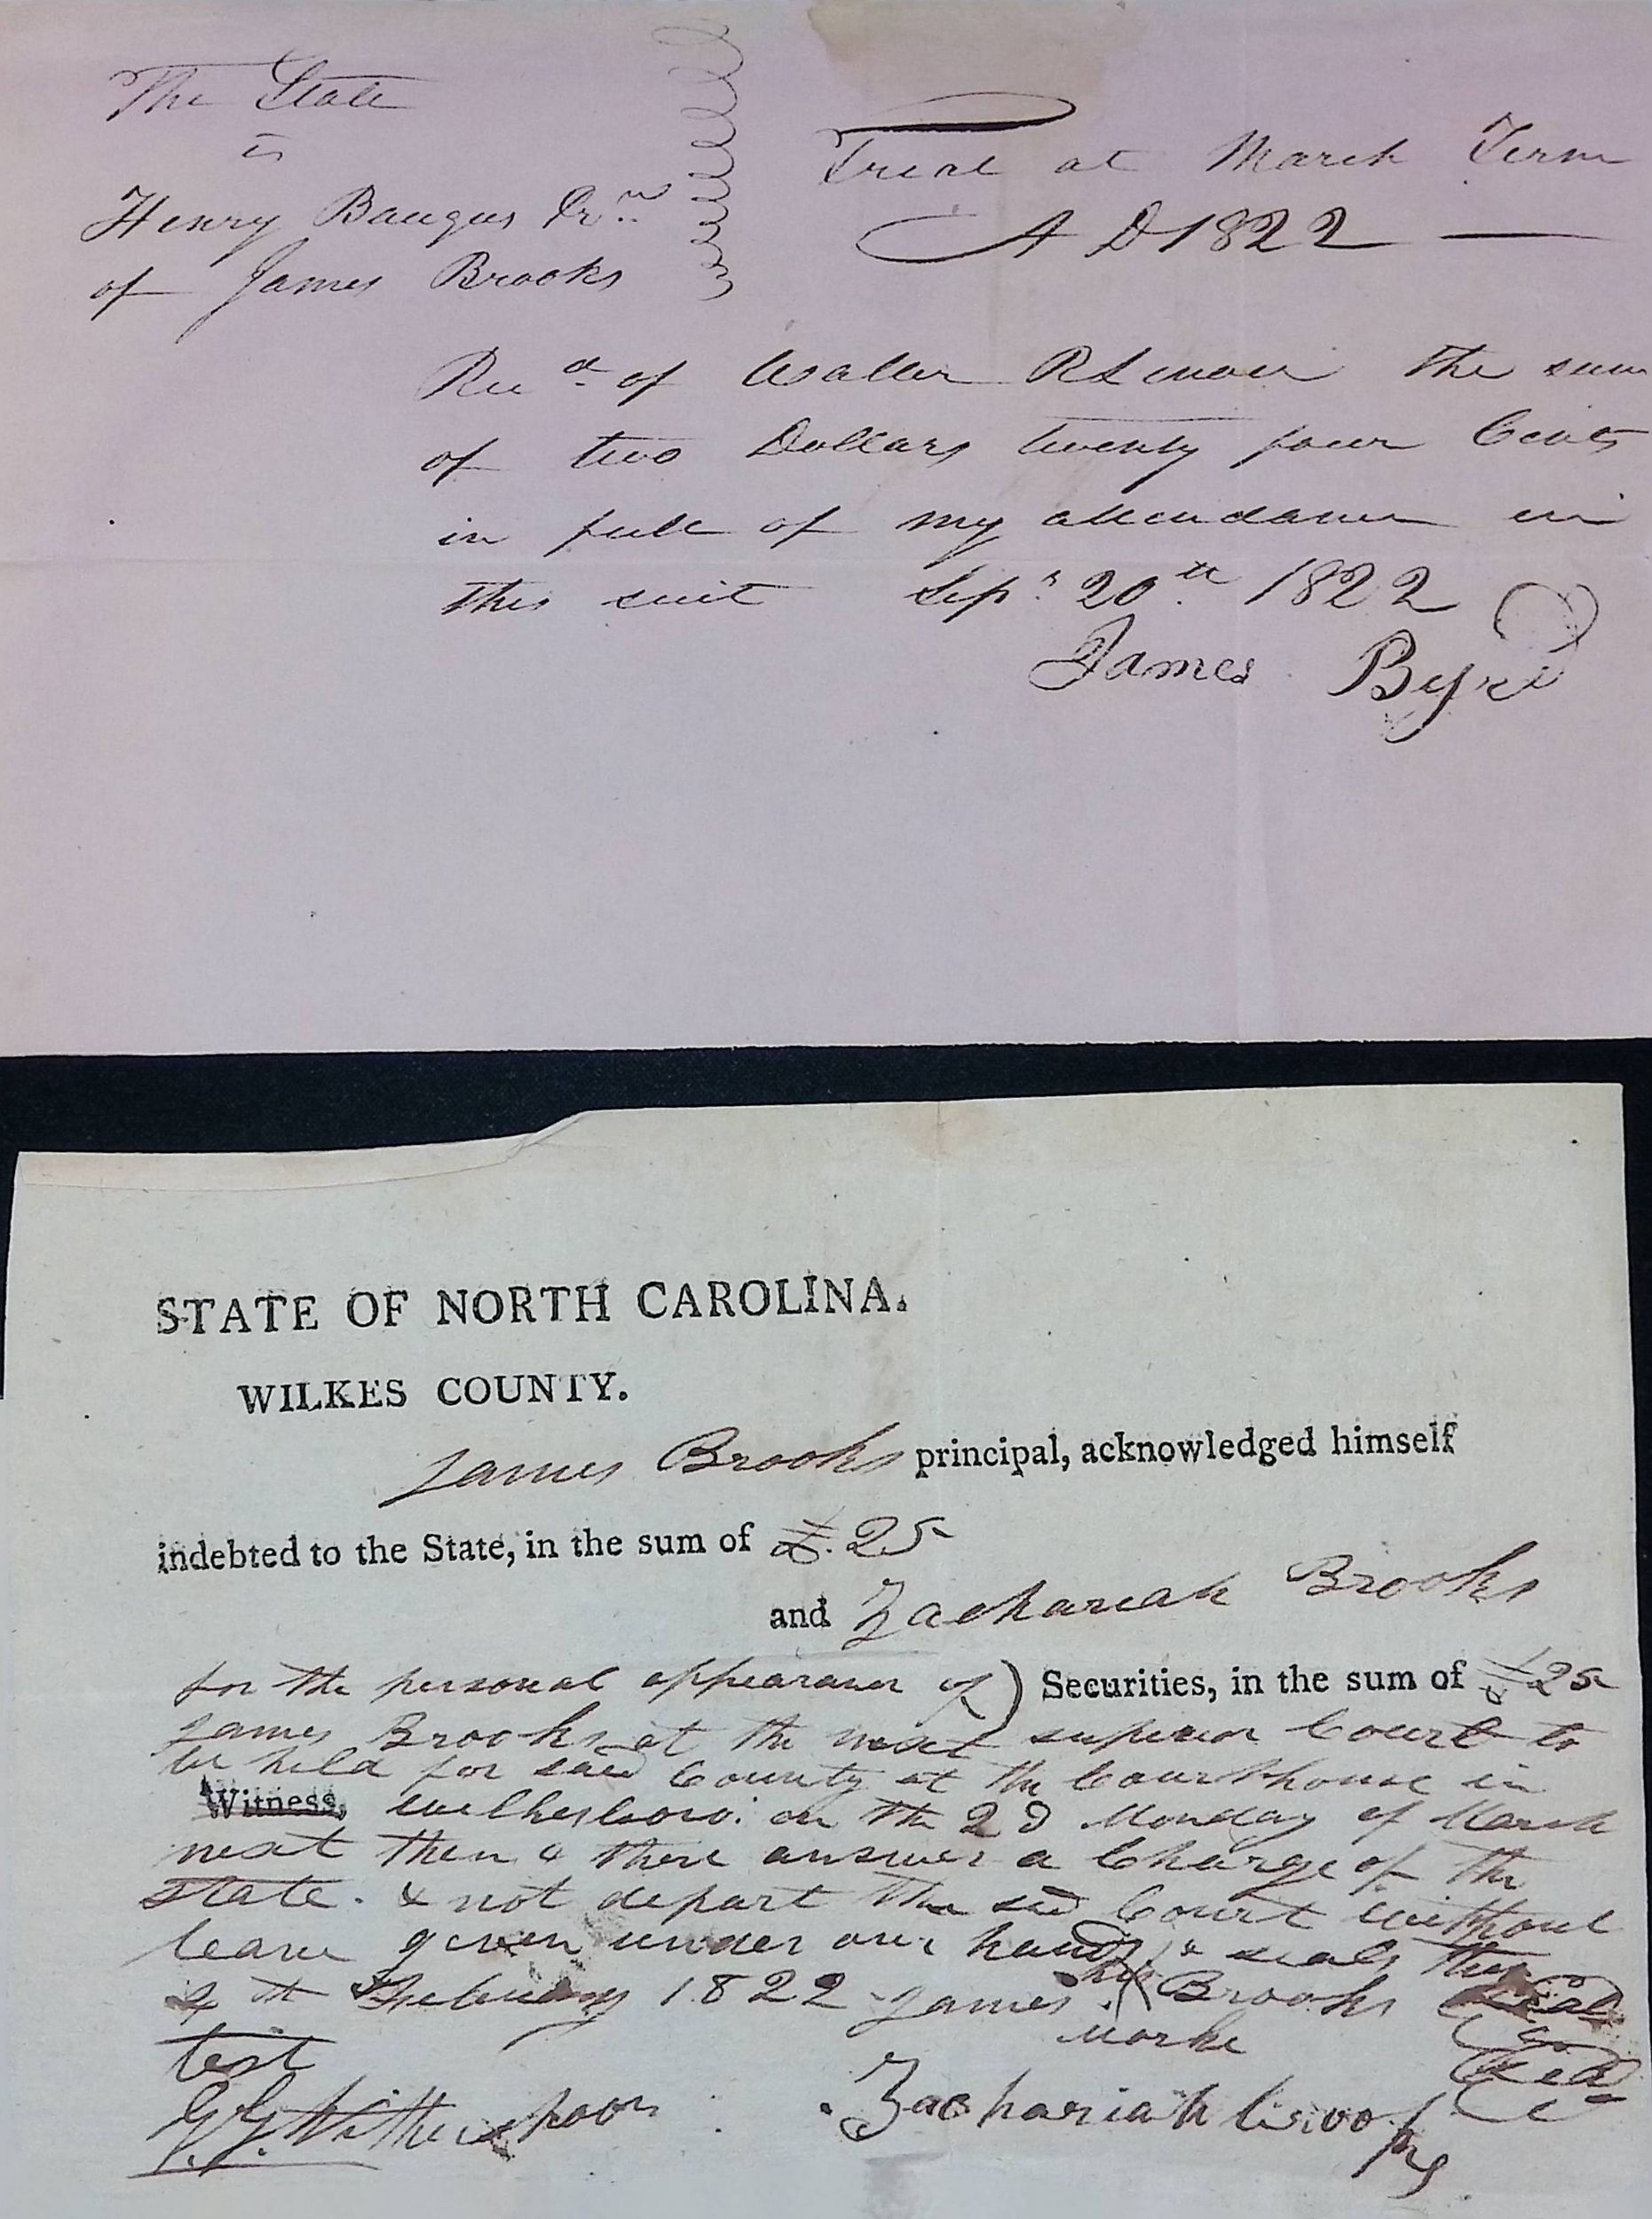 The State
vs
Henry Baugus Prr
of James Brooks
Trial at March Term
A D 1822
Recd of Waller R Lenoir the sum
of two Dollars twenty four Cents
in full of my attendance in
this suit Sepr 20th 1822
James Byrd
STATE OF NORTH CAROLINA.
WILKES COUNTY.
James Brooks principal, acknowledged himself
indebted to the State, in the sum of £.25
and Zachariah Brooks
for the personal appearance of) Securities, in the sum of £25
James Brooks at the next superior Court to
be held for said County at the Courthouse in
Witness, Wilkesboro: on the 2d Monday of March
next then & there answer a Charge of the
state. & not depart the sd Court without
leave given under our hands & seals this
4th February 1822 James his X Brooks Seal
marke
test
G. G. Witherspoon
Zachariah Brooks Seal